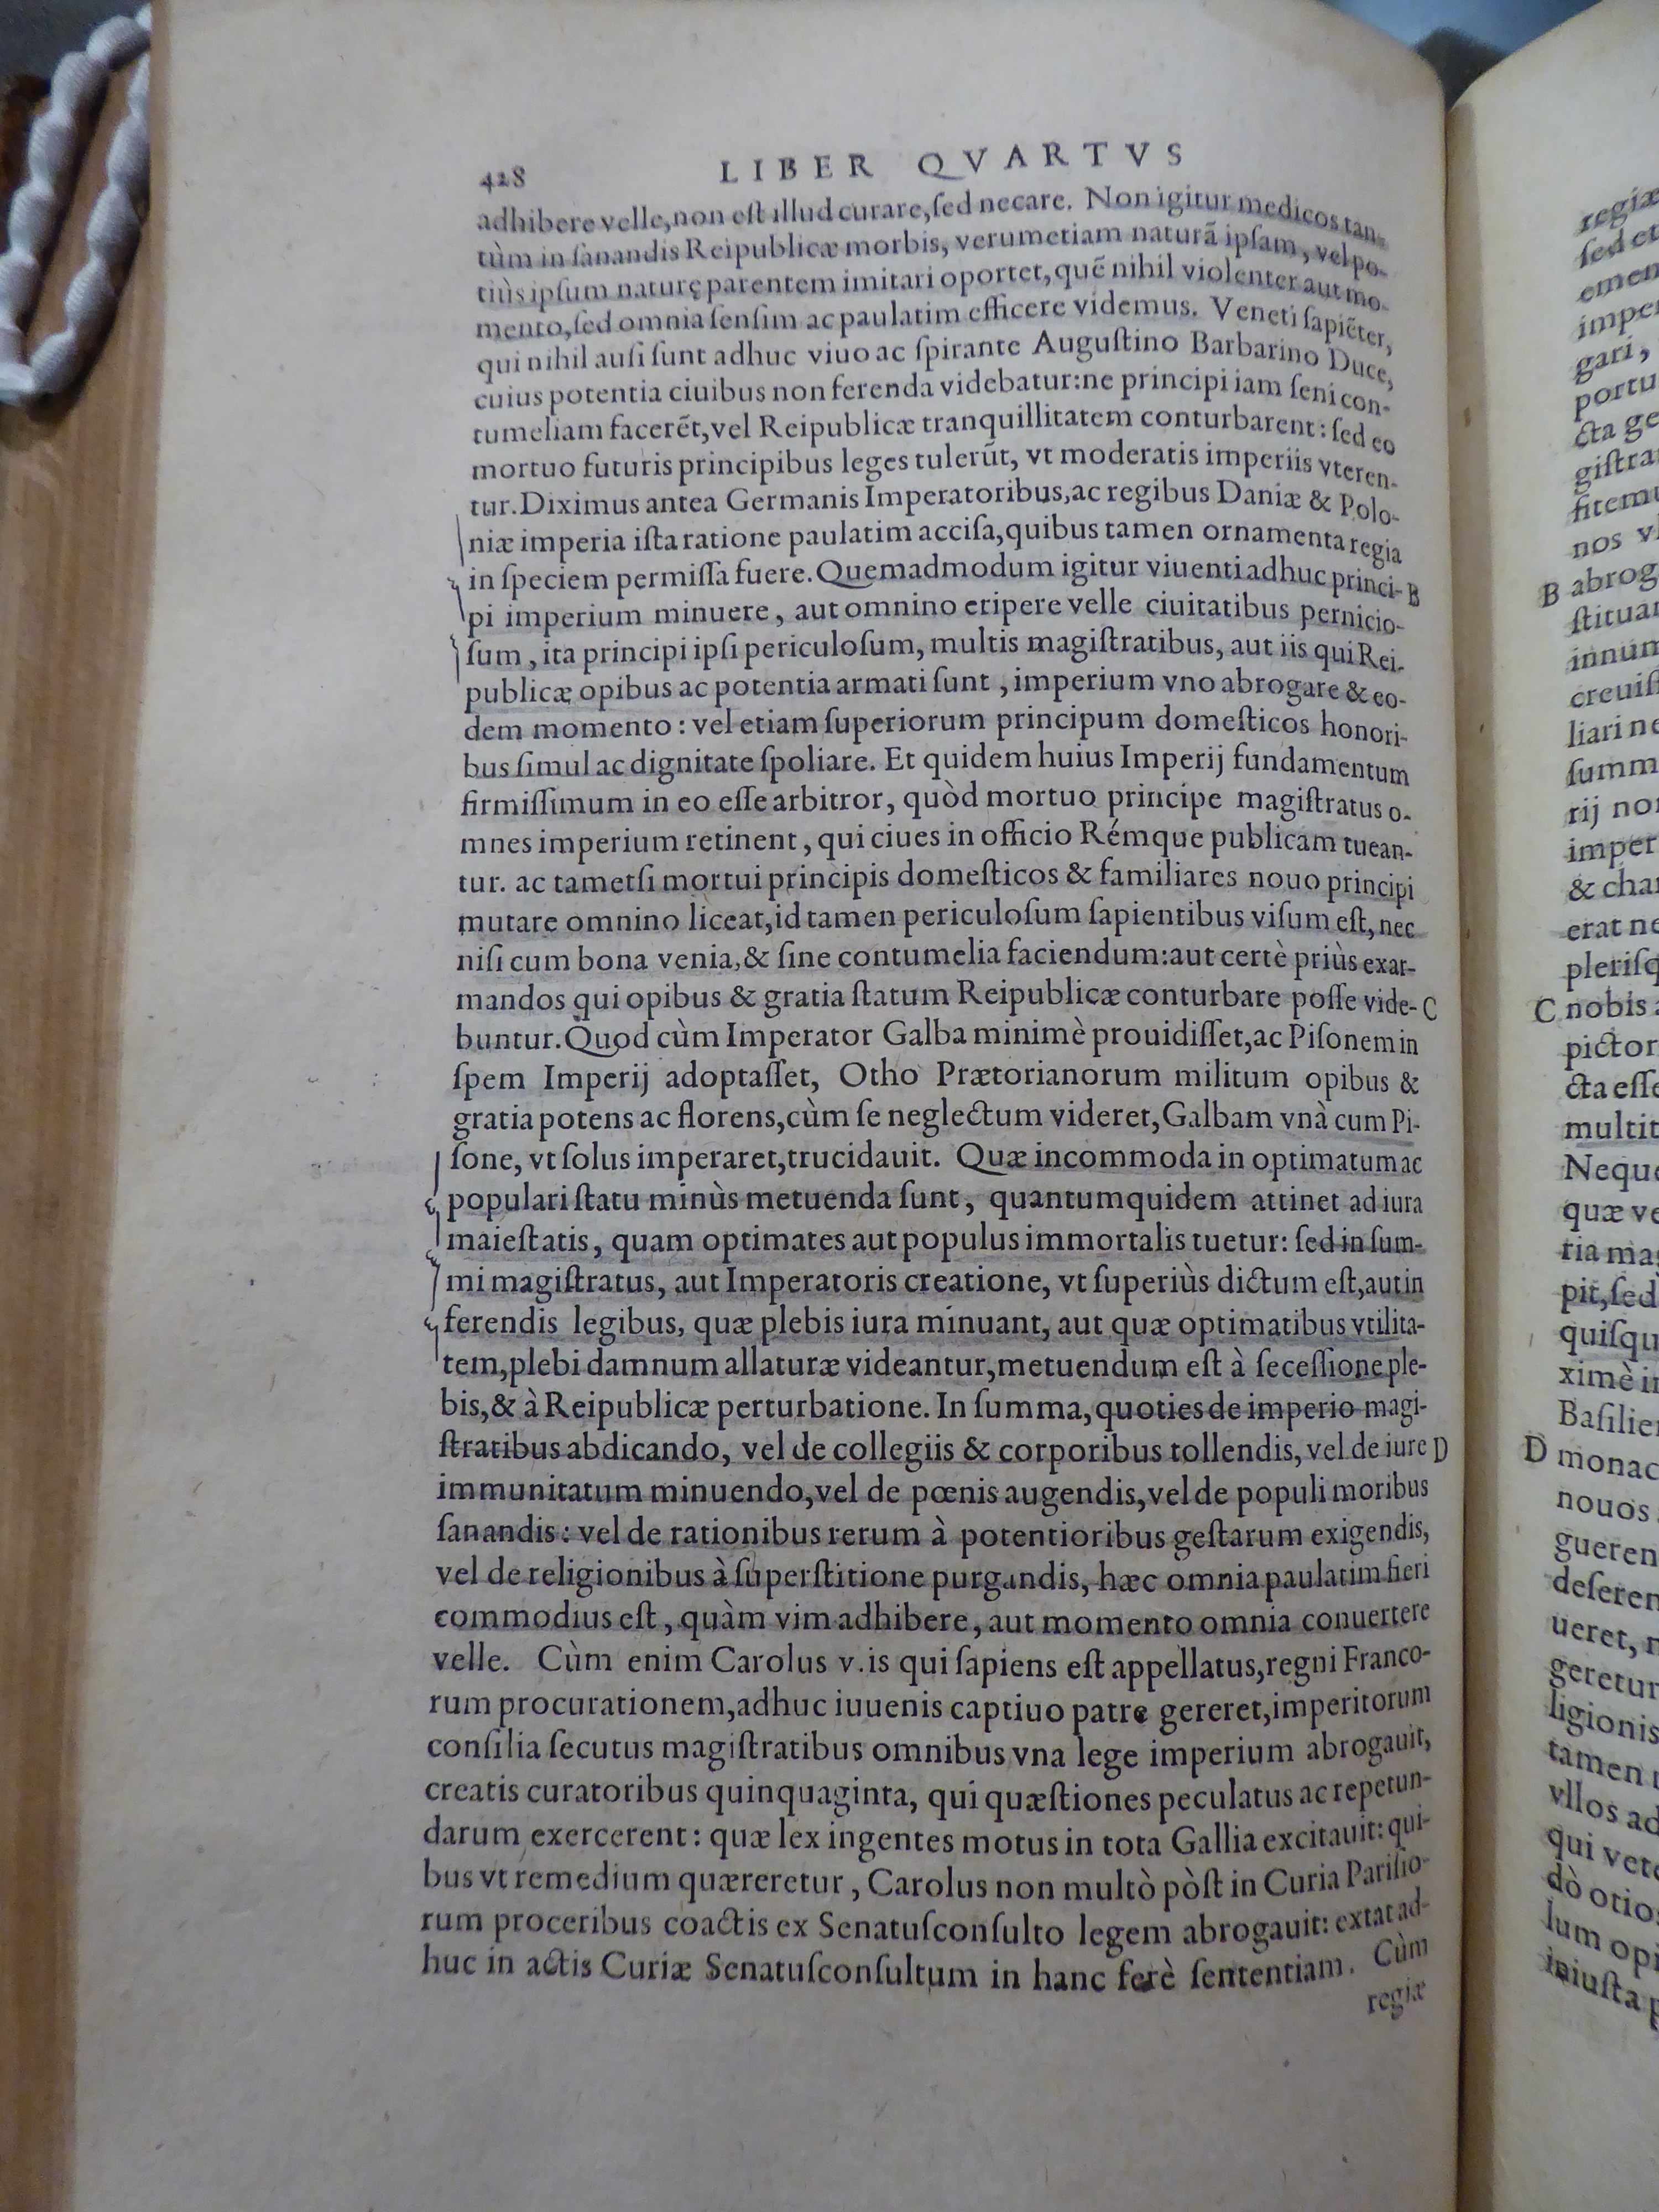 428 LIBER QVARTVS
adhibere velle, non est illud curare, sed necare. Non igitur medicos tan-
tùm in sanandis Reipublicæ morbis, verumetiam naturã ipsam, vel po-
tiùs ipsum naturę parentem imitari oportet, quẽ nihil violenter aut mo-
mento, sed omnia sensim ac paulatim efficere videmus. Veneti sapiẽter,
qui nihil ausi sunt adhuc viuo ac spirante Augustino Barbarino Duce,
cuius potentia ciuibus non ferenda videbatur: ne principi iam seni con-
tumeliam facerẽt, vel Reipublicæ tranquillitatem conturbarent: sed eo
mortuo futuris principibus leges tulerũt, vt moderatis imperiis vteren-
tur. Diximus antea Germanis Imperatoribus, ac regibus Daniæ & Polo-
niæ imperia ista ratione paulatim accisa, quibus tamen ornamenta regia
in speciem permissa fuere. Quemadmodum igitur viuenti adhuc princi- B
pi imperium minuere, aut omnino eripere velle ciuitatibus pernicio-
sum, ita principi ipsi periculosum, multis magistratibus, aut iis qui Rei-
publicæ opibus ac potentia armati sunt, imperium vno abrogare & eo-
dem momento: vel etiam superiorum principum domesticos honori-
bus simul ac dignitate spoliare. Et quidem huius Imperij fundamentum
firmissimum in eo esse arbitror, quòd mortuo principe magistratus o-
mnes imperium retinent, qui ciues in officio Rémque publicam tuean-
tur. ac tametsi mortui principis domesticos & familiares nouo principi
mutare omnino liceat, id tamen periculosum sapientibus visum est, nec
nisi cum bona venia, & sine contumelia faciendum: aut certè priùs exar-
mandos qui opibus & gratia statum Reipublicæ conturbare posse vide- C
buntur. Quod cùm Imperator Galba minimè prouidisset, ac Pisonem in
spem Imperij adoptasset, Otho Prætorianorum militum opibus &
gratia potens ac florens, cùm se neglectum videret, Galbam vnà cum Pi-
sone, vt solus imperaret, trucidauit. Quæ incommoda in optimatum ac
populari statu minùs metuenda sunt, quantumquidem attinet ad iura
maiestatis, quam optimates aut populus immortalis tuetur: sed in sum-
mi magistratus, aut Imperatoris creatione, vt superiùs dictum est, aut in
ferendis legibus, quæ plebis iura minuant, aut quæ optimatibus vtilita-
tem, plebi damnum allaturæ videantur, metuendum est à secessione ple-
bis, & à Reipublicæ perturbatione. In summa, quoties de imperio magi-
stratibus abdicando, vel de collegiis & corporibus tollendis, vel de iure D
immunitatum minuendo, vel de pœnis augendis, vel de populi moribus
sanandis: vel de rationibus rerum à potentioribus gestarum exigendis,
vel de religionibus à superstitione purgandis, hæc omnia paulatim fieri
commodius est, quàm vim adhibere, aut momento omnia conuertere
velle. Cùm enim Carolus v. is qui sapiens est appellatus, regni Franco-
rum procurationem, adhuc iuuenis captiuo patre gereret, imperitorum
consilia secutus magistratibus omnibus vna lege imperium abrogauit,
creatis curatoribus quinquaginta, qui quæstiones peculatus ac repetun-
darum exercerent: quæ lex ingentes motus in tota Gallia excitauit: qui-
bus vt remedium quæreretur, Carolus non multò pòst in Curia Parisio-
rum proceribus coactis ex Senatusconsulto legem abrogauit: extat ad-
huc in actis Curiæ Senatusconsultum in hanc ferè sententiam. Cùm
regiæ
regiæ
sed et
emen
imper
gari,
portu
cta ge
gistra
fitemu
nos vl
B abrog
stituar
innum
creuiss
liari ne
summ
rij nor
imper
& char
erat ne
plerisq
C nobis a
pictor
cta esse
multit
Neque
quæ ve
ria mag
pit, sed
quisqu
ximè in
Basilien
D monac
nouos
gueren
deseren
ueret, n
geretur
ligionis
tamen
vllos ad
qui vete
dò otios
lum opi
iniusta p